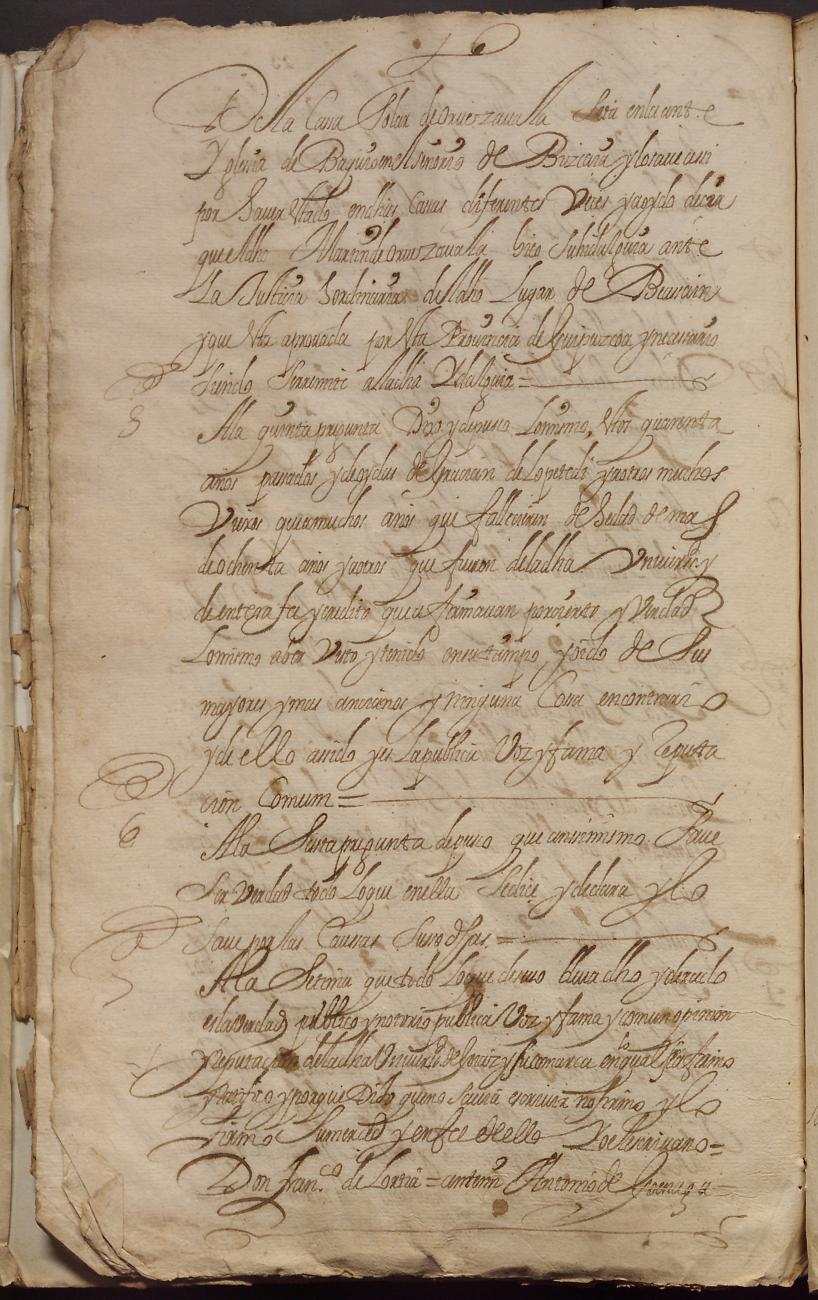 De la Cassa Solar de orverzavalla sita en la ante
Yglesia de en el señorio de Bizcaya y lo save assi
por haver estado en dhas Cassas diferentes Vezes y a oydo deçir
que el dho Martin de orverzavalla hizo su hidalguia ante
La Justiçia hordinaria del dho Lugar de
y que esta aprovada por esta Provinçia de Guipuzcoa y neçessario
siendo se remite a la dha Ydalguia =
5 A la quinta pregunta Dixo y depusso Lo mismo, estos quarenta
años passados y de oydas de de y a otros muchos
Viejos que a muchos años que falleçieron de hedad de mas
de ochenta años y a otros que fueron de la dha Universd. y
de entera fee y credito que afirmavan por çierto y Verdad
Lo mismo aver Visto y tenido en su tiempo y oido de Sus
mayores y mas ançianos y ninguna Cosa en contrario
y de ello a sido y es La publica Voz y fama y Reputa
cion Comum =
6 A la Sesta pregunta depuso que assimismo Save
Ser Verdad todo Lo que en ella Se diçe y declara y lo
Save por las Caussas Susodhas. =
7 A la Setima que todo Lo que de suso lleva dho y declarado
es la verdad publico y notorio publica Voz y fama y comun opinion
y Reputaçion de la dha Universd. de y su comarca en lo qual se afirmo
y Ratifico y porque Dixo que no Savia escrevir no firmo y lo
firmo Su merced y en fee de ello Yo el escrivano =
Don Fran.co de Loria = ante mi Antonio de